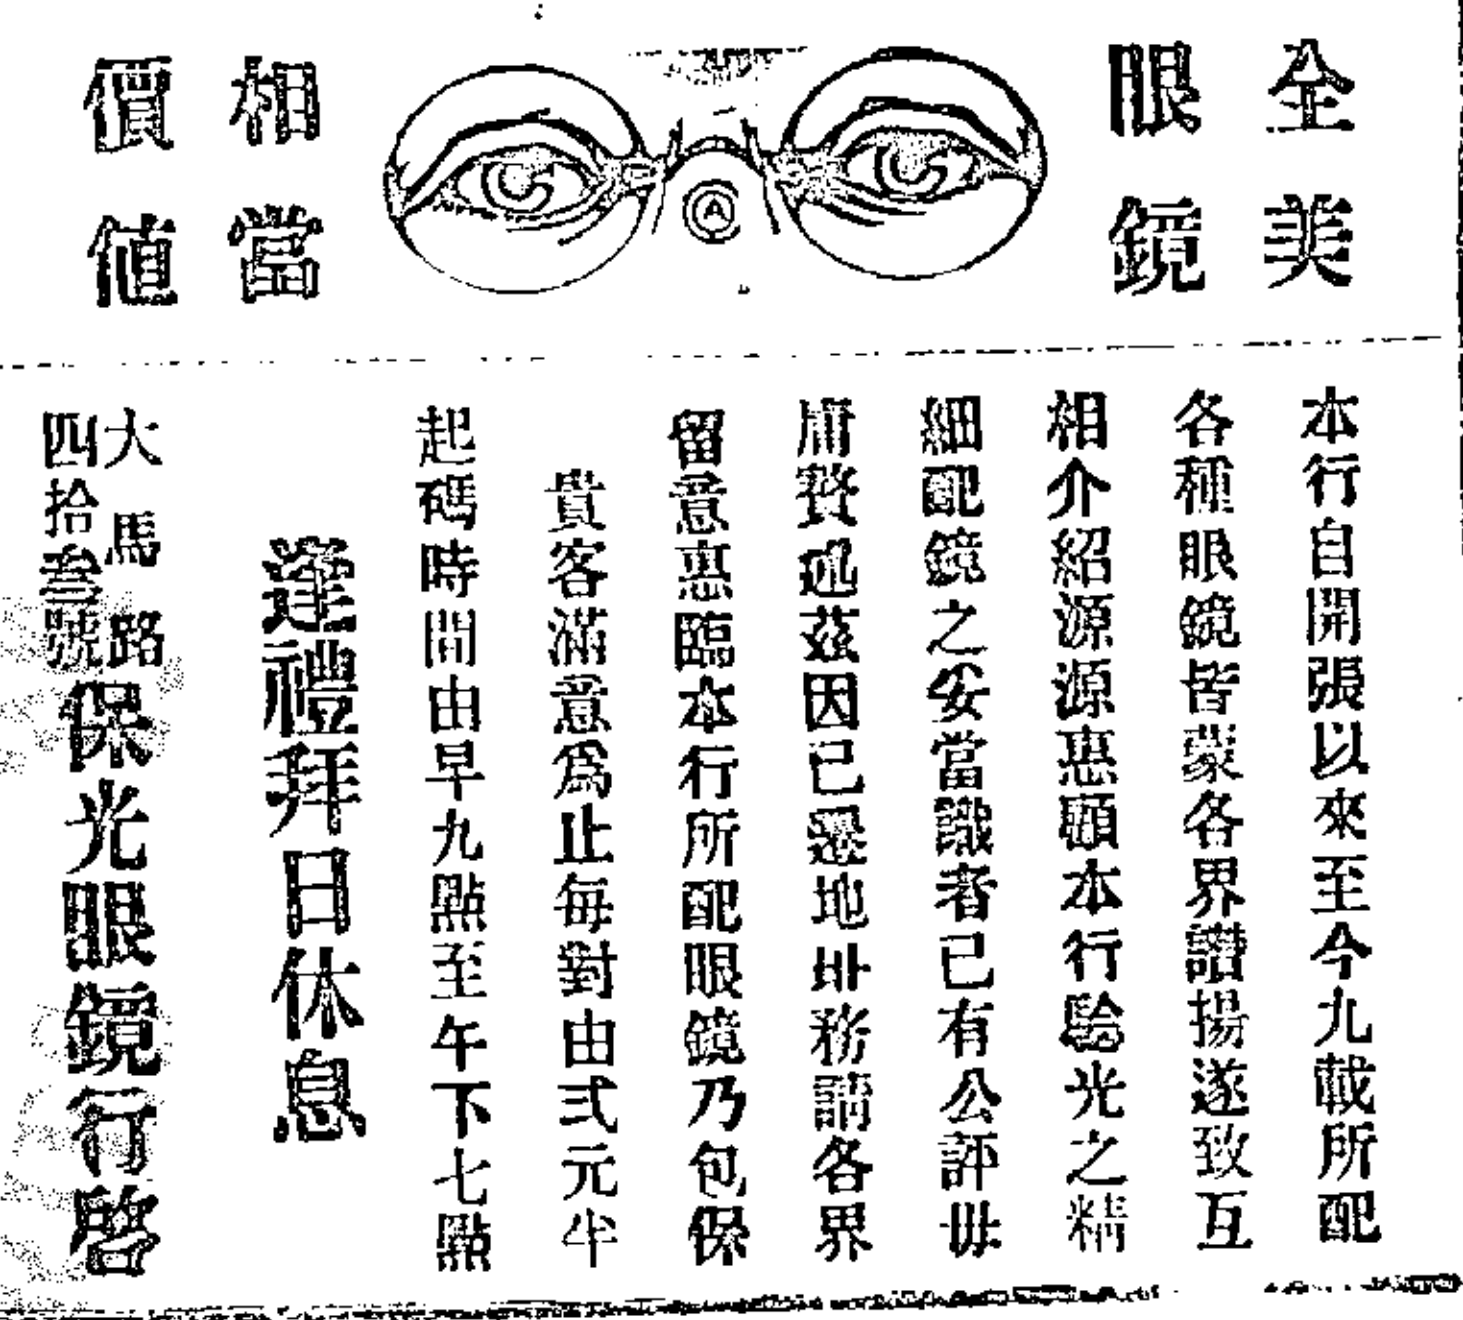 全美
眼鏡
A
相當
價值
本行自開張以來至今九載所配
各種眼鏡皆蒙各界讚揚遂致互
相介紹源源惠顧本行驗光之精
細配鏡之妥當識者已有公評毋
庸贅述茲因已遷地址務請各界
留意惠臨本行所配眼鏡乃包保
貴客滿意為止每對由弍元半
起碼時間由早九點至午下七點
逢禮拜日休息
大馬路
四拾叁號
保光眼鏡行啓